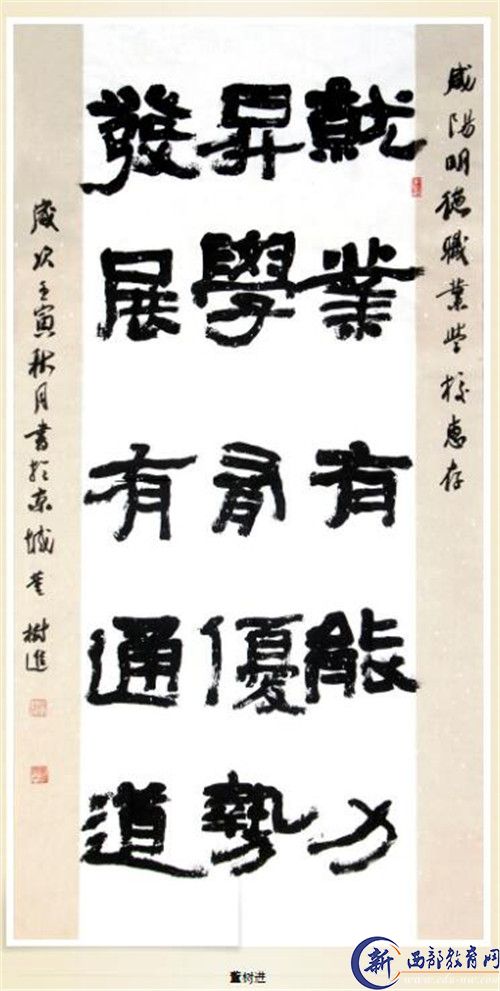 咸陽明德職業学校惠存
就業有能力
昇學有優勢
發展有通道
歲次壬寅秋月書於京城董樹進
董树进
新西部教育网